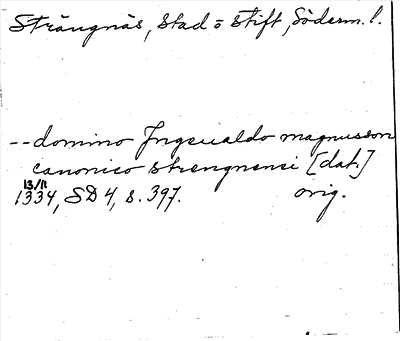 Strängnäs, stad o stift, Söderm. l.
-- domino Jngeualdo magnusson
canonico strengnensi [dat.]
13/11
1334, SD 4, s. 397. orig.